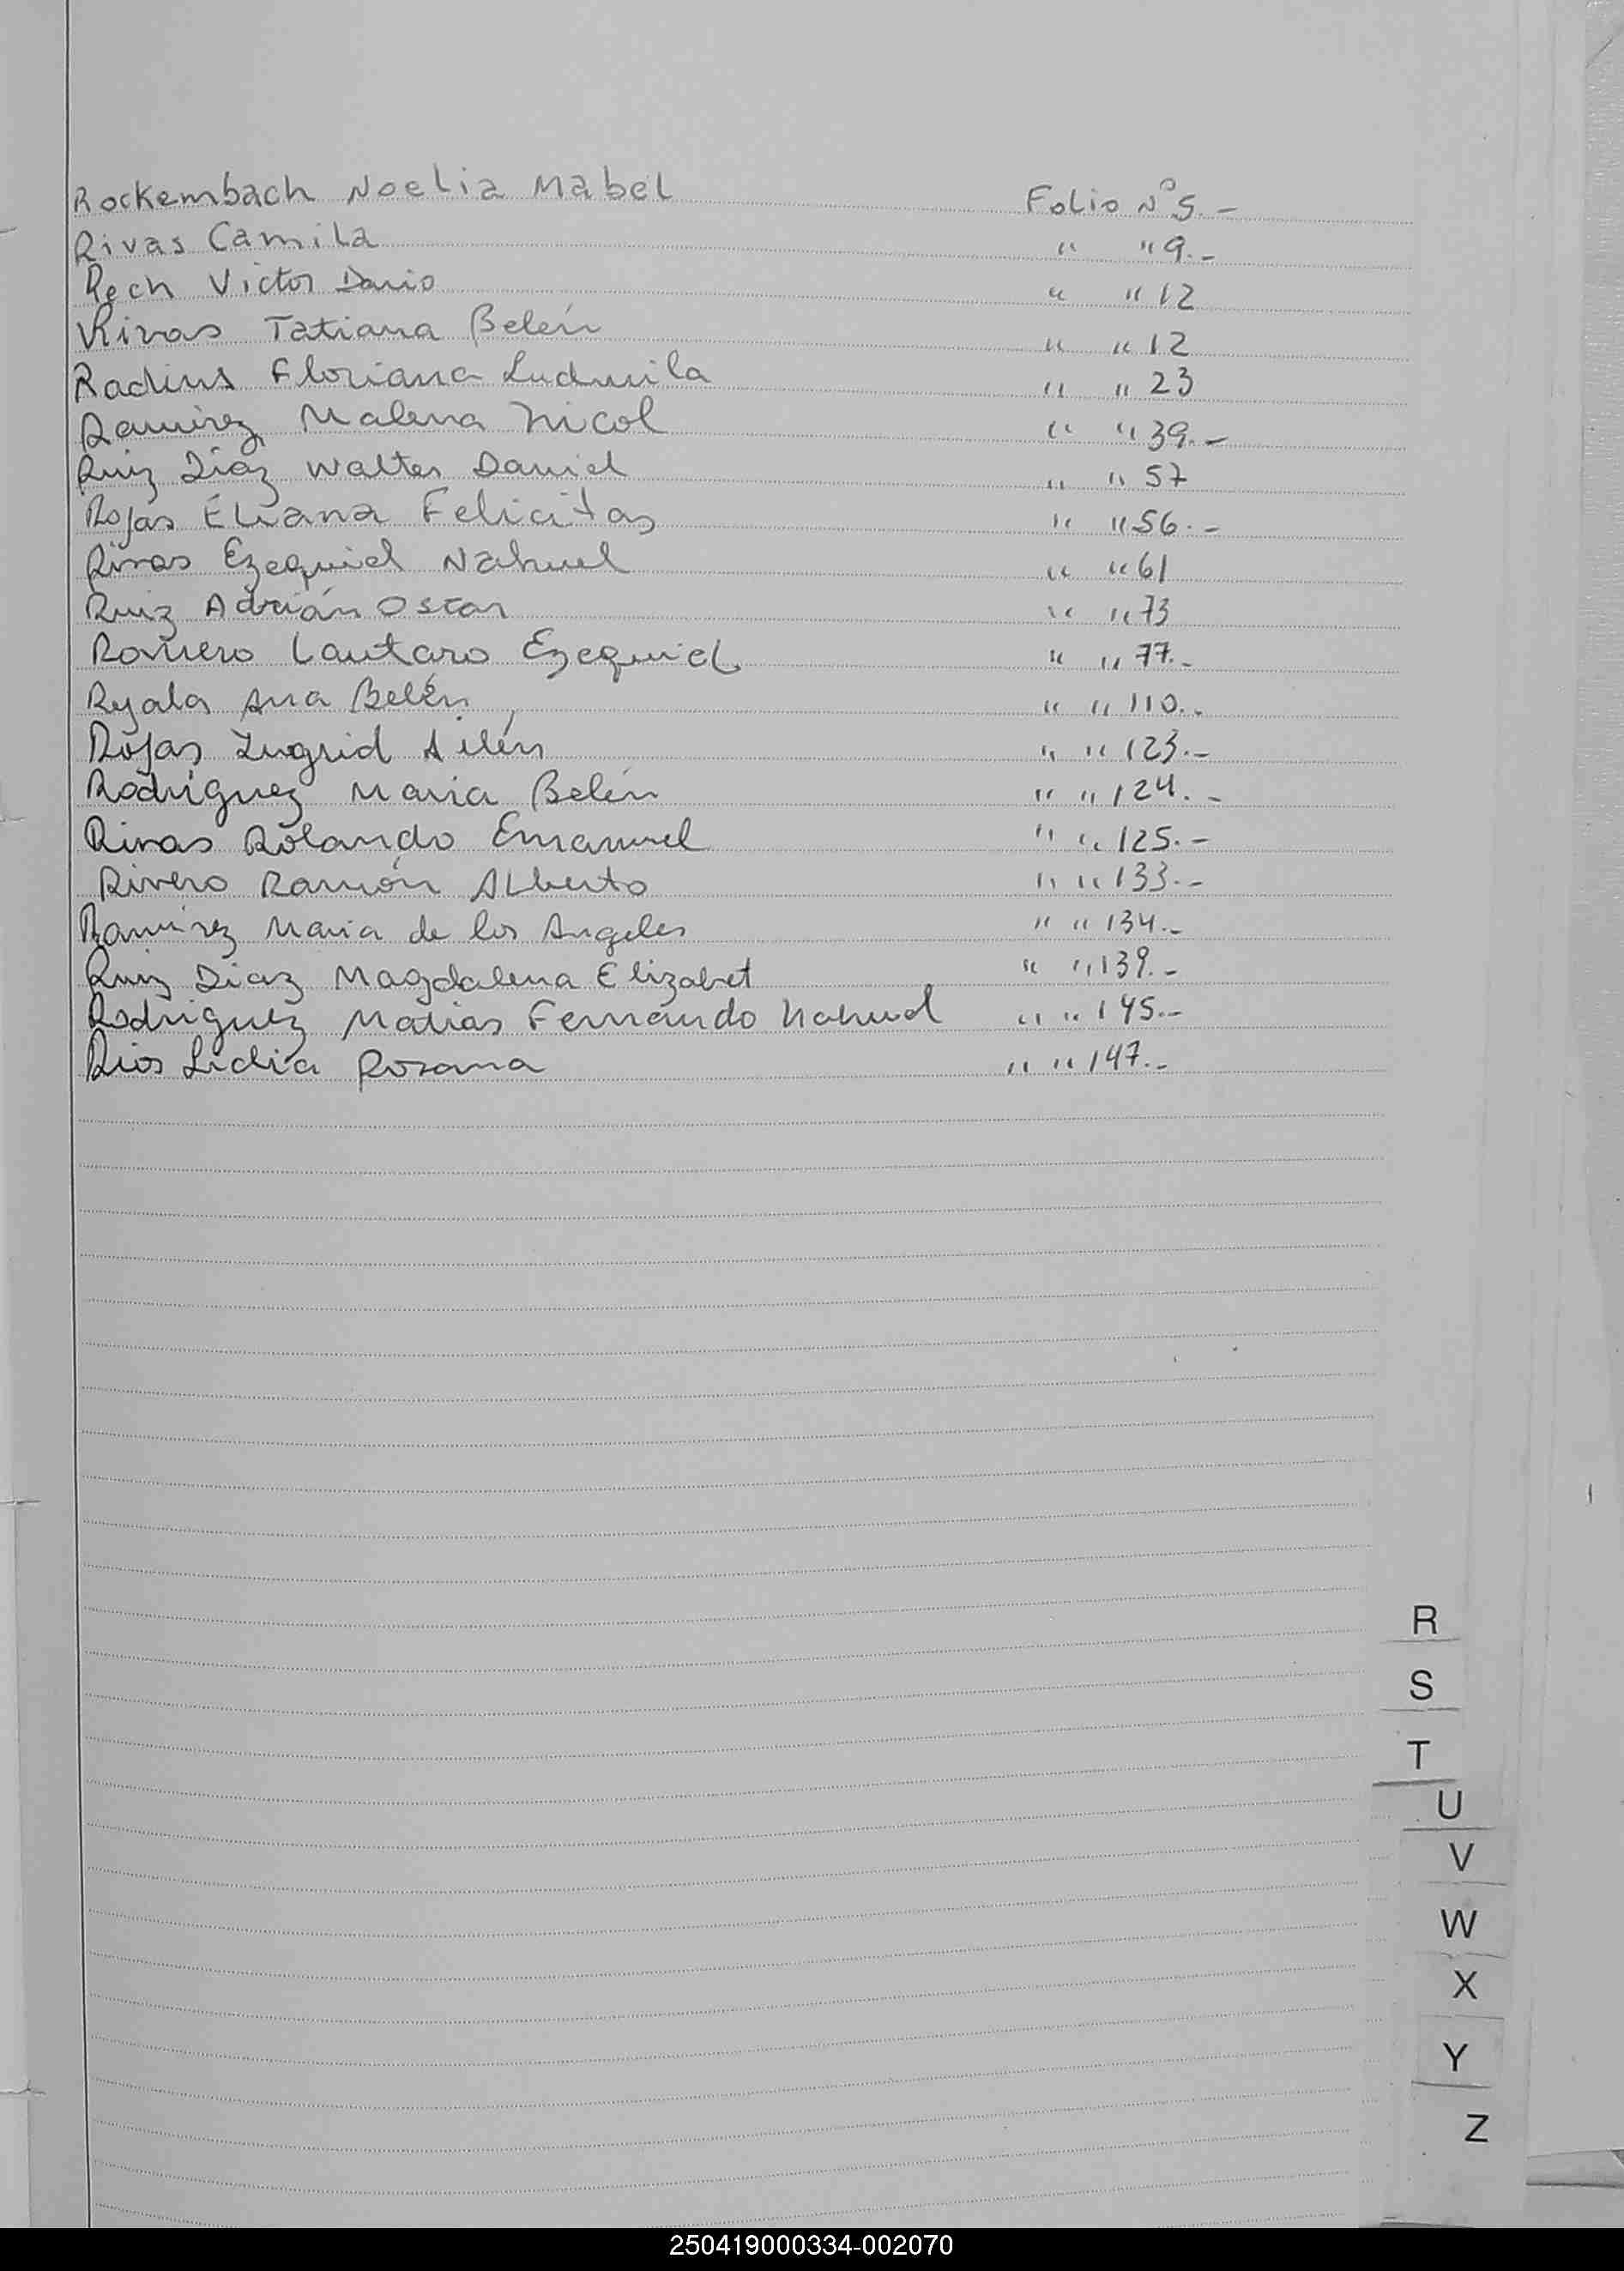 Rockembach Noelia Mabel Folio N° 5.-
Rivas Camila " " 9.-
Rech Victor Dario " " 12
Rivas Tatiana Belén " " 12
Radins Floriana Ludmila " " 23
Ramirez Malena Nicol " " 39.-
Ruiz Diaz Walter Daniel " " 57
Rojas Eliana Felicitas " " 56.-
Rivas Ezequiel Nahuel " " 61
Ruiz Adrián Oscar " " 73
Romero Lautaro Ezequiel " " 77.-
Ryala Ana Belén " " 110.-
Rojas Ingrid Ailén " " 123.-
Rodriguez Maria Belén " " 124.-
Rivas Rolando Emanuel " " 125.-
Rivero Ramón Alberto " " 133.-
Ramirez Maria de los Angeles " " 134.-
Ruiz Diaz Magdalena Elizabet " " 139.-
Rodriguez Matias Fernando Nahuel " " 145.-
Rios Lidia Rosana " " 147.-
R
S
T
U
V
W
X
Y
Z
250419000334-002070